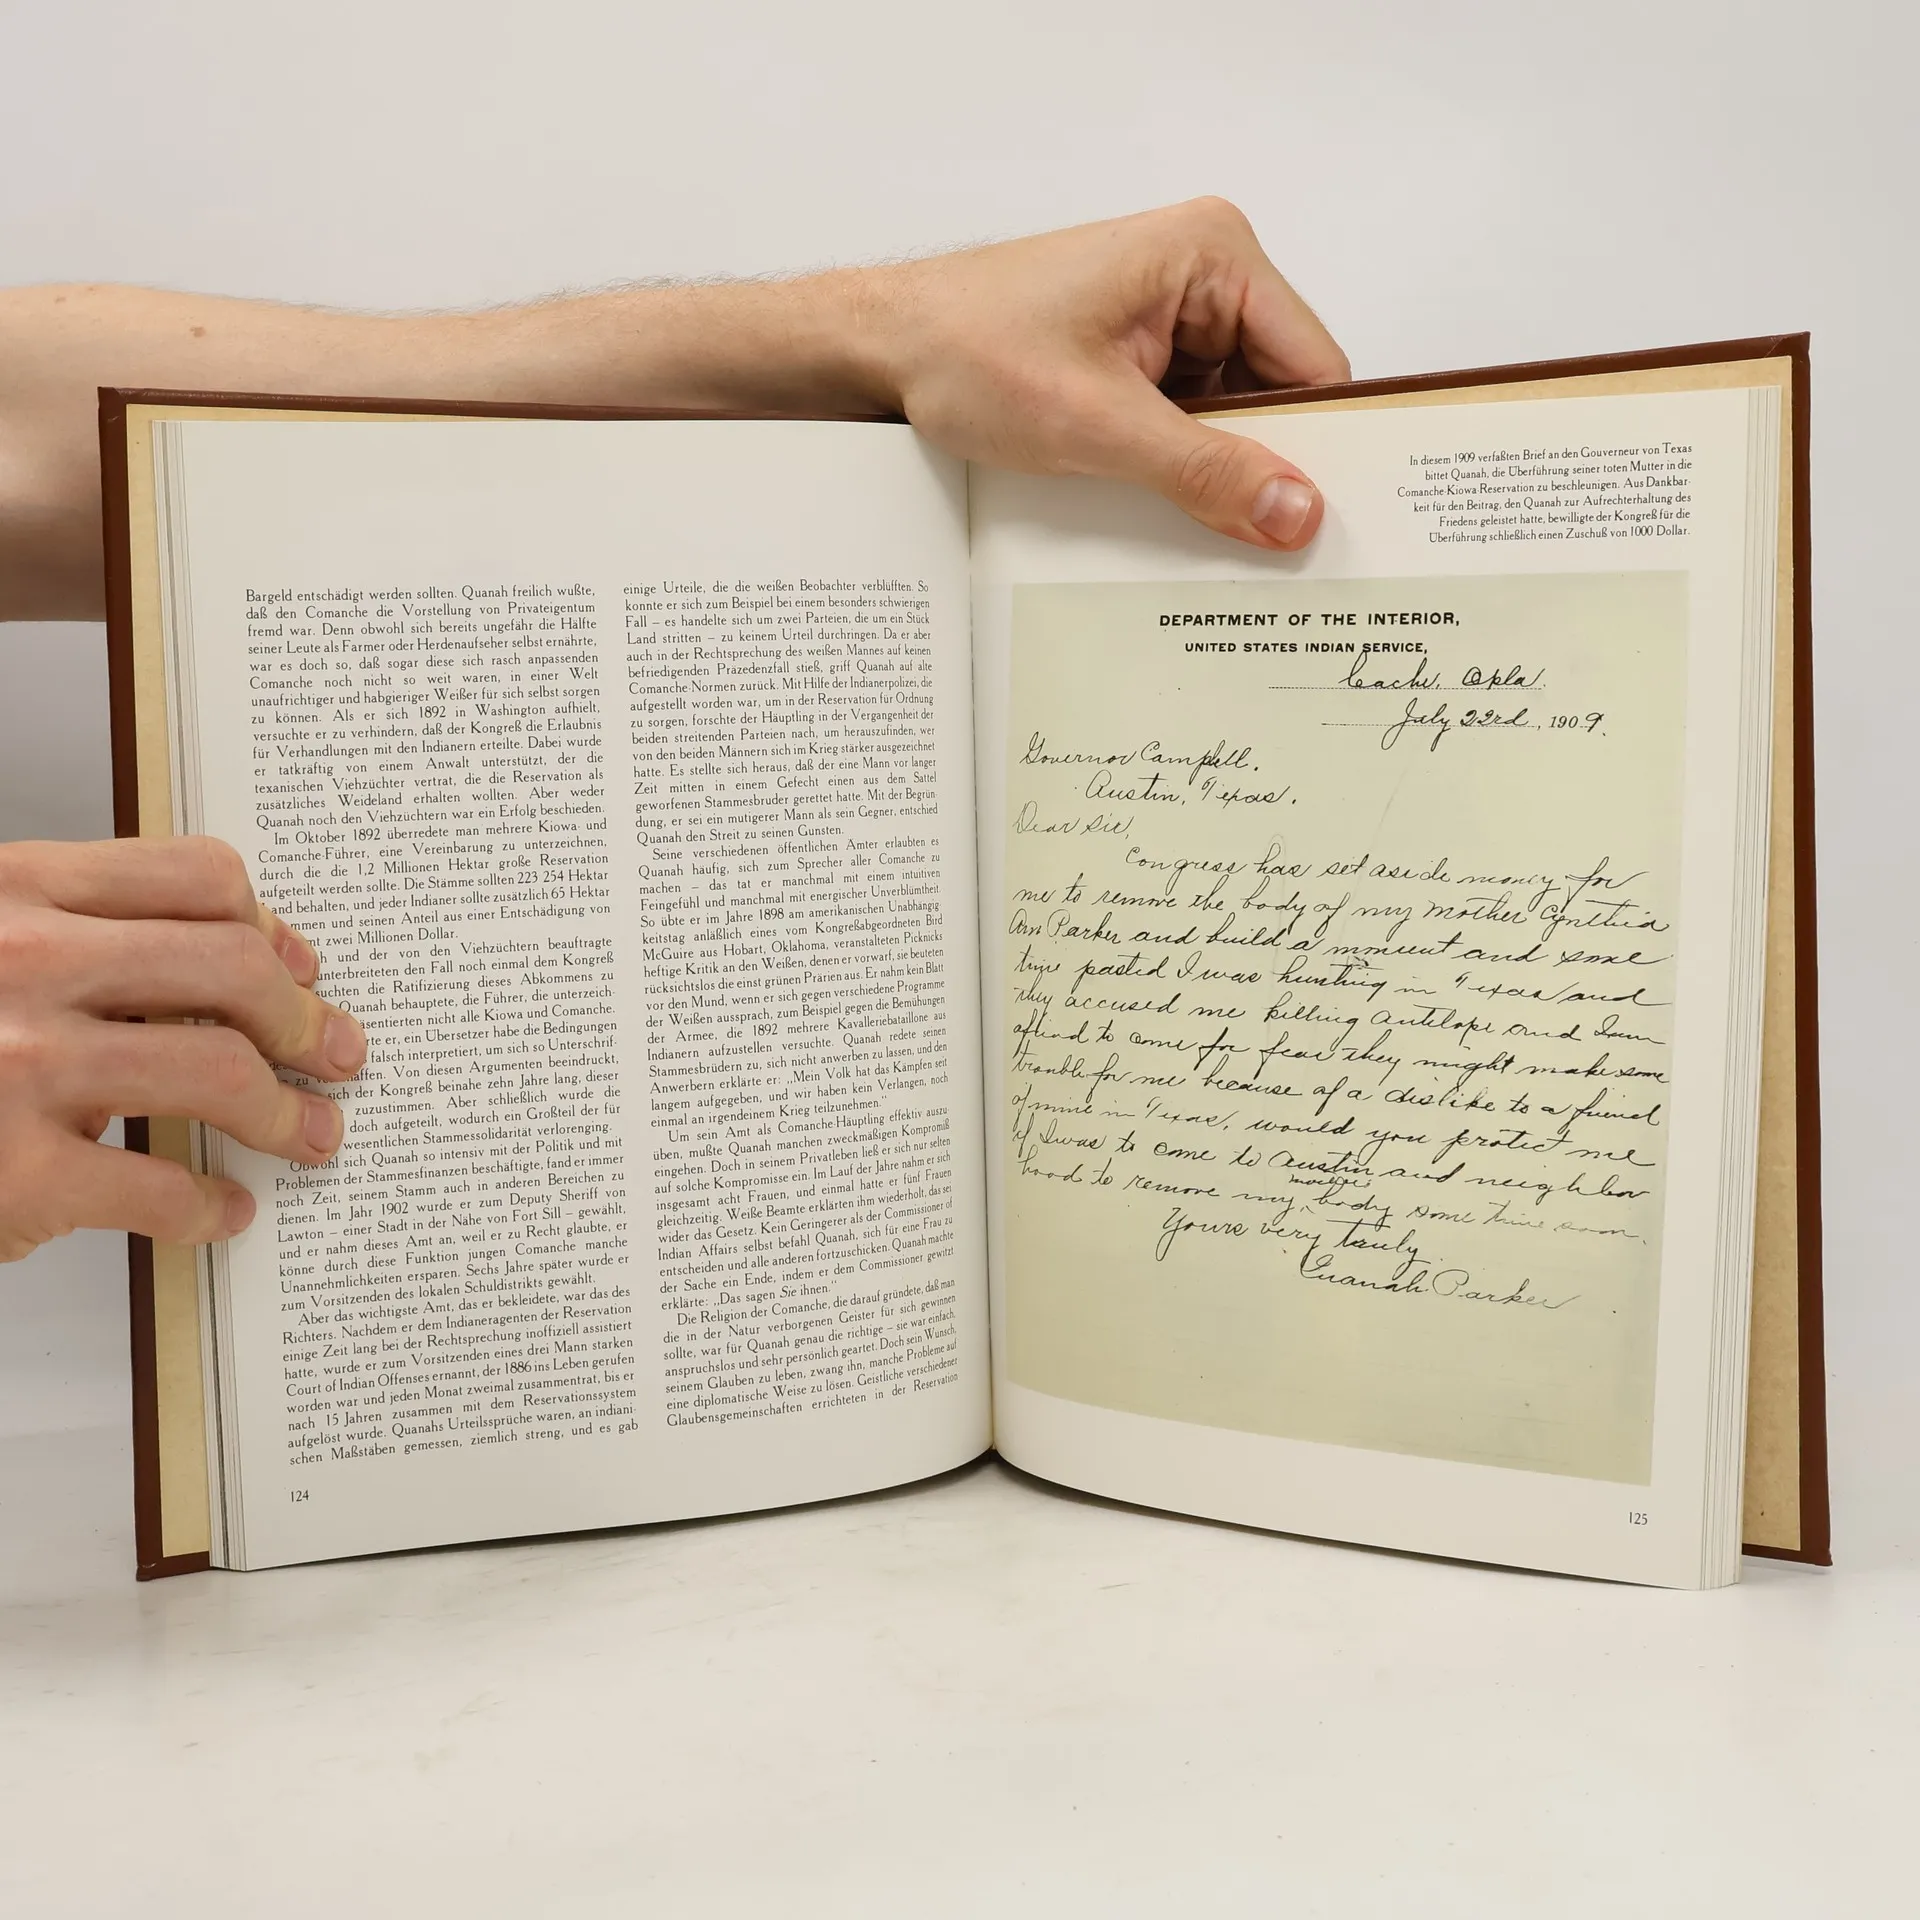 Bargeld entschädigt werden sollten. Quanah freilich wußte,
daß den Comanche die Vorstellung von Privateigentum
fremd war. Denn obwohl sich bereits ungefähr die Hälfte
seiner Leute als Farmer oder Herdenaufseher selbst ernährte,
war es doch so, daß sogar diese sich rasch anpassenden
Comanche noch nicht so weit waren, in einer Welt
unaufrichtiger und habgieriger Weißer für sich selbst sorgen
zu können. Als er sich 1892 in Washington aufhielt,
versuchte er zu verhindern, daß der Kongreß die Erlaubnis
für Verhandlungen mit den Indianern erteilte. Dabei wurde
er tatkräftig von einem Anwalt unterstützt, der die
texanischen Viehzüchter vertrat, die die Reservation als
zusätzliches Weideland erhalten wollten. Aber weder
Quanah noch den Viehzüchtern war ein Erfolg beschieden.
Im Oktober 1892 überredete man mehrere Kiowa- und
Comanche-Führer, eine Vereinbarung zu unterzeichnen,
durch die die 1,2 Millionen Hektar große Reservation
aufgeteilt werden sollte. Die Stämme sollten 223 254 Hektar
Land behalten, und jeder Indianer sollte zusätzlich 65 Hektar
mmen und seinen Anteil aus einer Entschädigung von
mt zwei Millionen Dollar.
h und der von den Viehzüchtern beauftragte
unterbreiteten den Fall noch einmal dem Kongreß
suchten die Ratifizierung dieses Abkommens zu
Quanah behauptete, die Führer, die unterzeich-
äsentierten nicht alle Kiowa und Comanche.
rte er, ein Übersetzer habe die Bedingungen
falsch interpretiert, um sich so Unterschrif-
zu haffen. Von diesen Argumenten beeindruckt,
sich der Kongreß beinahe zehn Jahre lang, dieser
zuzustimmen. Aber schließlich wurde die
doch aufgeteilt, wodurch ein Großteil der für
wesentlichen Stammessolidarität verlorenging.
Obwohl sich Quanah so intensiv mit der Politik und mit
Problemen der Stammesfinanzen beschäftigte, fand er immer
noch Zeit, seinem Stamm auch in anderen Bereichen zu
dienen. Im Jahr 1902 wurde er zum Deputy Sheriff von
Lawton – einer Stadt in der Nähe von Fort Sill – gewählt,
und er nahm dieses Amt an, weil er zu Recht glaubte, er
könne durch diese Funktion jungen Comanche manche
Unannehmlichkeiten ersparen. Sechs Jahre später wurde er
zum Vorsitzenden des lokalen Schuldistrikts gewählt.
Aber das wichtigste Amt, das er bekleidete, war das des
Richters. Nachdem er dem Indianeragenten der Reservation
einige Zeit lang bei der Rechtsprechung inoffiziell assistiert
hatte, wurde er zum Vorsitzenden eines drei Mann starken
Court of Indian Offenses ernannt, der 1886 ins Leben gerufen
worden war und jeden Monat zweimal zusammentrat, bis er
nach 15 Jahren zusammen mit dem Reservationssystem
aufgelöst wurde. Quanahs Urteilssprüche waren, an indiani-
schen Maßstäben gemessen, ziemlich streng, und es gab
124
einige Urteile, die die weißen Beobachter verblüfften. So
konnte er sich zum Beispiel bei einem besonders schwierigen
Fall – es handelte sich um zwei Parteien, die um ein Stück
Land stritten – zu keinem Urteil durchringen. Da er aber
auch in der Rechtsprechung des weißen Mannes auf keinen
befriedigenden Präzedenzfall stieß, griff Quanah auf alte
Comanche-Normen zurück. Mit Hilfe der Indianerpolizei, die
aufgestellt worden war, um in der Reservation für Ordnung
zu sorgen, forschte der Häuptling in der Vergangenheit der
beiden streitenden Parteien nach, um herauszufinden, wer
von den beiden Männern sich im Krieg stärker ausgezeichnet
hatte. Es stellte sich heraus, daß der eine Mann vor langer
Zeit mitten in einem Gefecht einen aus dem Sattel
geworfenen Stammesbruder gerettet hatte. Mit der Begrün-
dung, er sei ein mutigerer Mann als sein Gegner, entschied
Quanah den Streit zu seinen Gunsten.
Seine verschiedenen öffentlichen Ämter erlaubten es
Quanah häufig, sich zum Sprecher aller Comanche zu
machen – das tat er manchmal mit einem intuitiven
Feingefühl und manchmal mit energischer Unverblümtheit.
So übte er im Jahre 1898 am amerikanischen Unabhängig-
keitstag anläßlich eines vom Kongreßabgeordneten Bird
McGuire aus Hobart, Oklahoma, veranstalteten Picknicks
heftige Kritik an den Weißen, denen er vorwarf, sie beuteten
rücksichtslos die einst grünen Prärien aus. Er nahm kein Blatt
vor den Mund, wenn er sich gegen verschiedene Programme
der Weißen aussprach, zum Beispiel gegen die Bemühungen
der Armee, die 1892 mehrere Kavalleriebataillone aus
Indianern aufzustellen versuchte. Quanah redete seinen
Stammesbrüdern zu, sich nicht anwerben zu lassen, und den
Anwerbern erklärte er: „Mein Volk hat das Kämpfen seit
langem aufgegeben, und wir haben kein Verlangen, noch
einmal an irgendeinem Krieg teilzunehmen."
Um sein Amt als Comanche-Häuptling effektiv auszu-
üben, mußte Quanah manchen zweckmäßigen Kompromiß
eingehen. Doch in seinem Privatleben ließ er sich nur selten
auf solche Kompromisse ein. Im Lauf der Jahre nahm er sich
insgesamt acht Frauen, und einmal hatte er fünf Frauen
gleichzeitig. Weiße Beamte erklärten ihm wiederholt, das sei
wider das Gesetz. Kein Geringerer als der Commissioner of
Indian Affairs selbst befahl Quanah, sich für eine Frau zu
entscheiden und alle anderen fortzuschicken. Quanah machte
der Sache ein Ende, indem er dem Commissioner gewitzt
erklärte: „Das sagen Sie ihnen."
Die Religion der Comanche, die darauf gründete, daß man
die in der Natur verborgenen Geister für sich gewinnen
sollte, war für Quanah genau die richtige – sie war einfach,
anspruchslos und sehr persönlich geartet. Doch sein Wunsch,
seinem Glauben zu leben, zwang ihn, manche Probleme auf
eine diplomatische Weise zu lösen. Geistliche verschiedener
Glaubensgemeinschaften errichteten in der Reservation
In diesem 1909 verfaßten Brief an den Gouverneur von Texas
bittet Quanah, die Überführung seiner toten Mutter in die
Comanche-Kiowa-Reservation zu beschleunigen. Aus Dankbar-
keit für den Beitrag, den Quanah zur Aufrechterhaltung des
Friedens geleistet hatte, bewilligte der Kongreß für die
Überführung schließlich einen Zuschuß von 1000 Dollar.
DEPARTMENT OF THE INTERIOR,
UNITED STATES INDIAN SERVICE,
Cache, Okla.
July 23rd, 1909.
Governor Campbell,
Austin, Texas.
Dear Sir,
Congress has set aside money for
me to remove the body of my mother Cynthia
Ann Parker and build a monument and some
time pasted I was hunting in Texas and
they accused me killing antelope and I am
afraid to come for fear they might make some
trouble for me because of a dislike to a friend
of mine in Texas, would you protect me
if I was to come to Austin and neighbor
hood to remove my mother's body some time soon.
Yours very truly
Quanah Parker
125